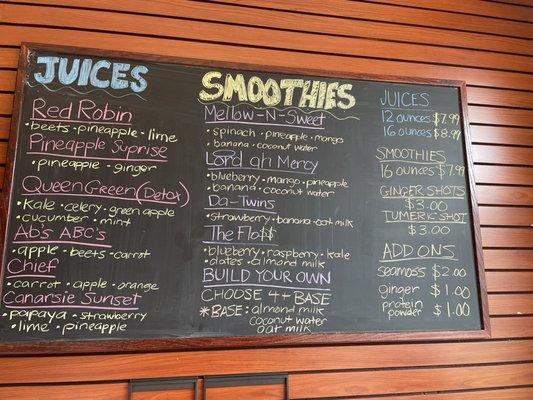 JUICES
Red Robin
• beets • pineapple • lime
Pineapple Suprise
• pineapple • ginger
Queen Green (Detox)
• Kale • celery • green apple
• cucumber • mint
Ab's ABC's
apple • beets • carrot
Chief
• carrot • apple • orange
Canarsie Sunset
• papaya • strawberry
• lime • pineapple
SMOOTHIES
Mellow-N-Sweet
• spinach • pineapple • mango
• banana • coconut water
Lord ah Mercy
• blueberry • mango • pineapple
• banana • coconut water
Da-Twins
• strawberry • banana • oat milk
The Flo$$
• blueberry • raspberry • kale
• dates • almond milk
BUILD YOUR OWN
CHOOSE 4 + BASE
*BASE: almond milk
coconut water
oat milk
JUICES
12 ounces $7.99
16 ounces $8.99
SMOOTHIES
16 ounces $7.99
GINGER SHOTS
$3.00
TUMERIC SHOT
$3.00
ADD ONS
seamoss $2.00
ginger $1.00
protein
powder $1.00